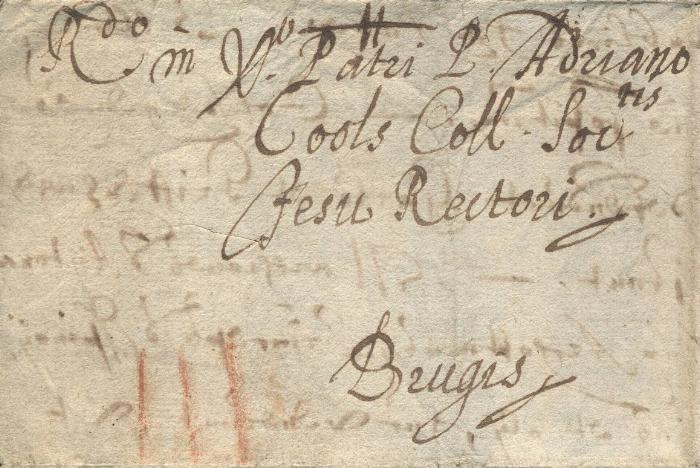 Rdo in Xo. Patri P. Adriano
Cools Coll. Soctis
Jesu Rectori.
Brugis
III